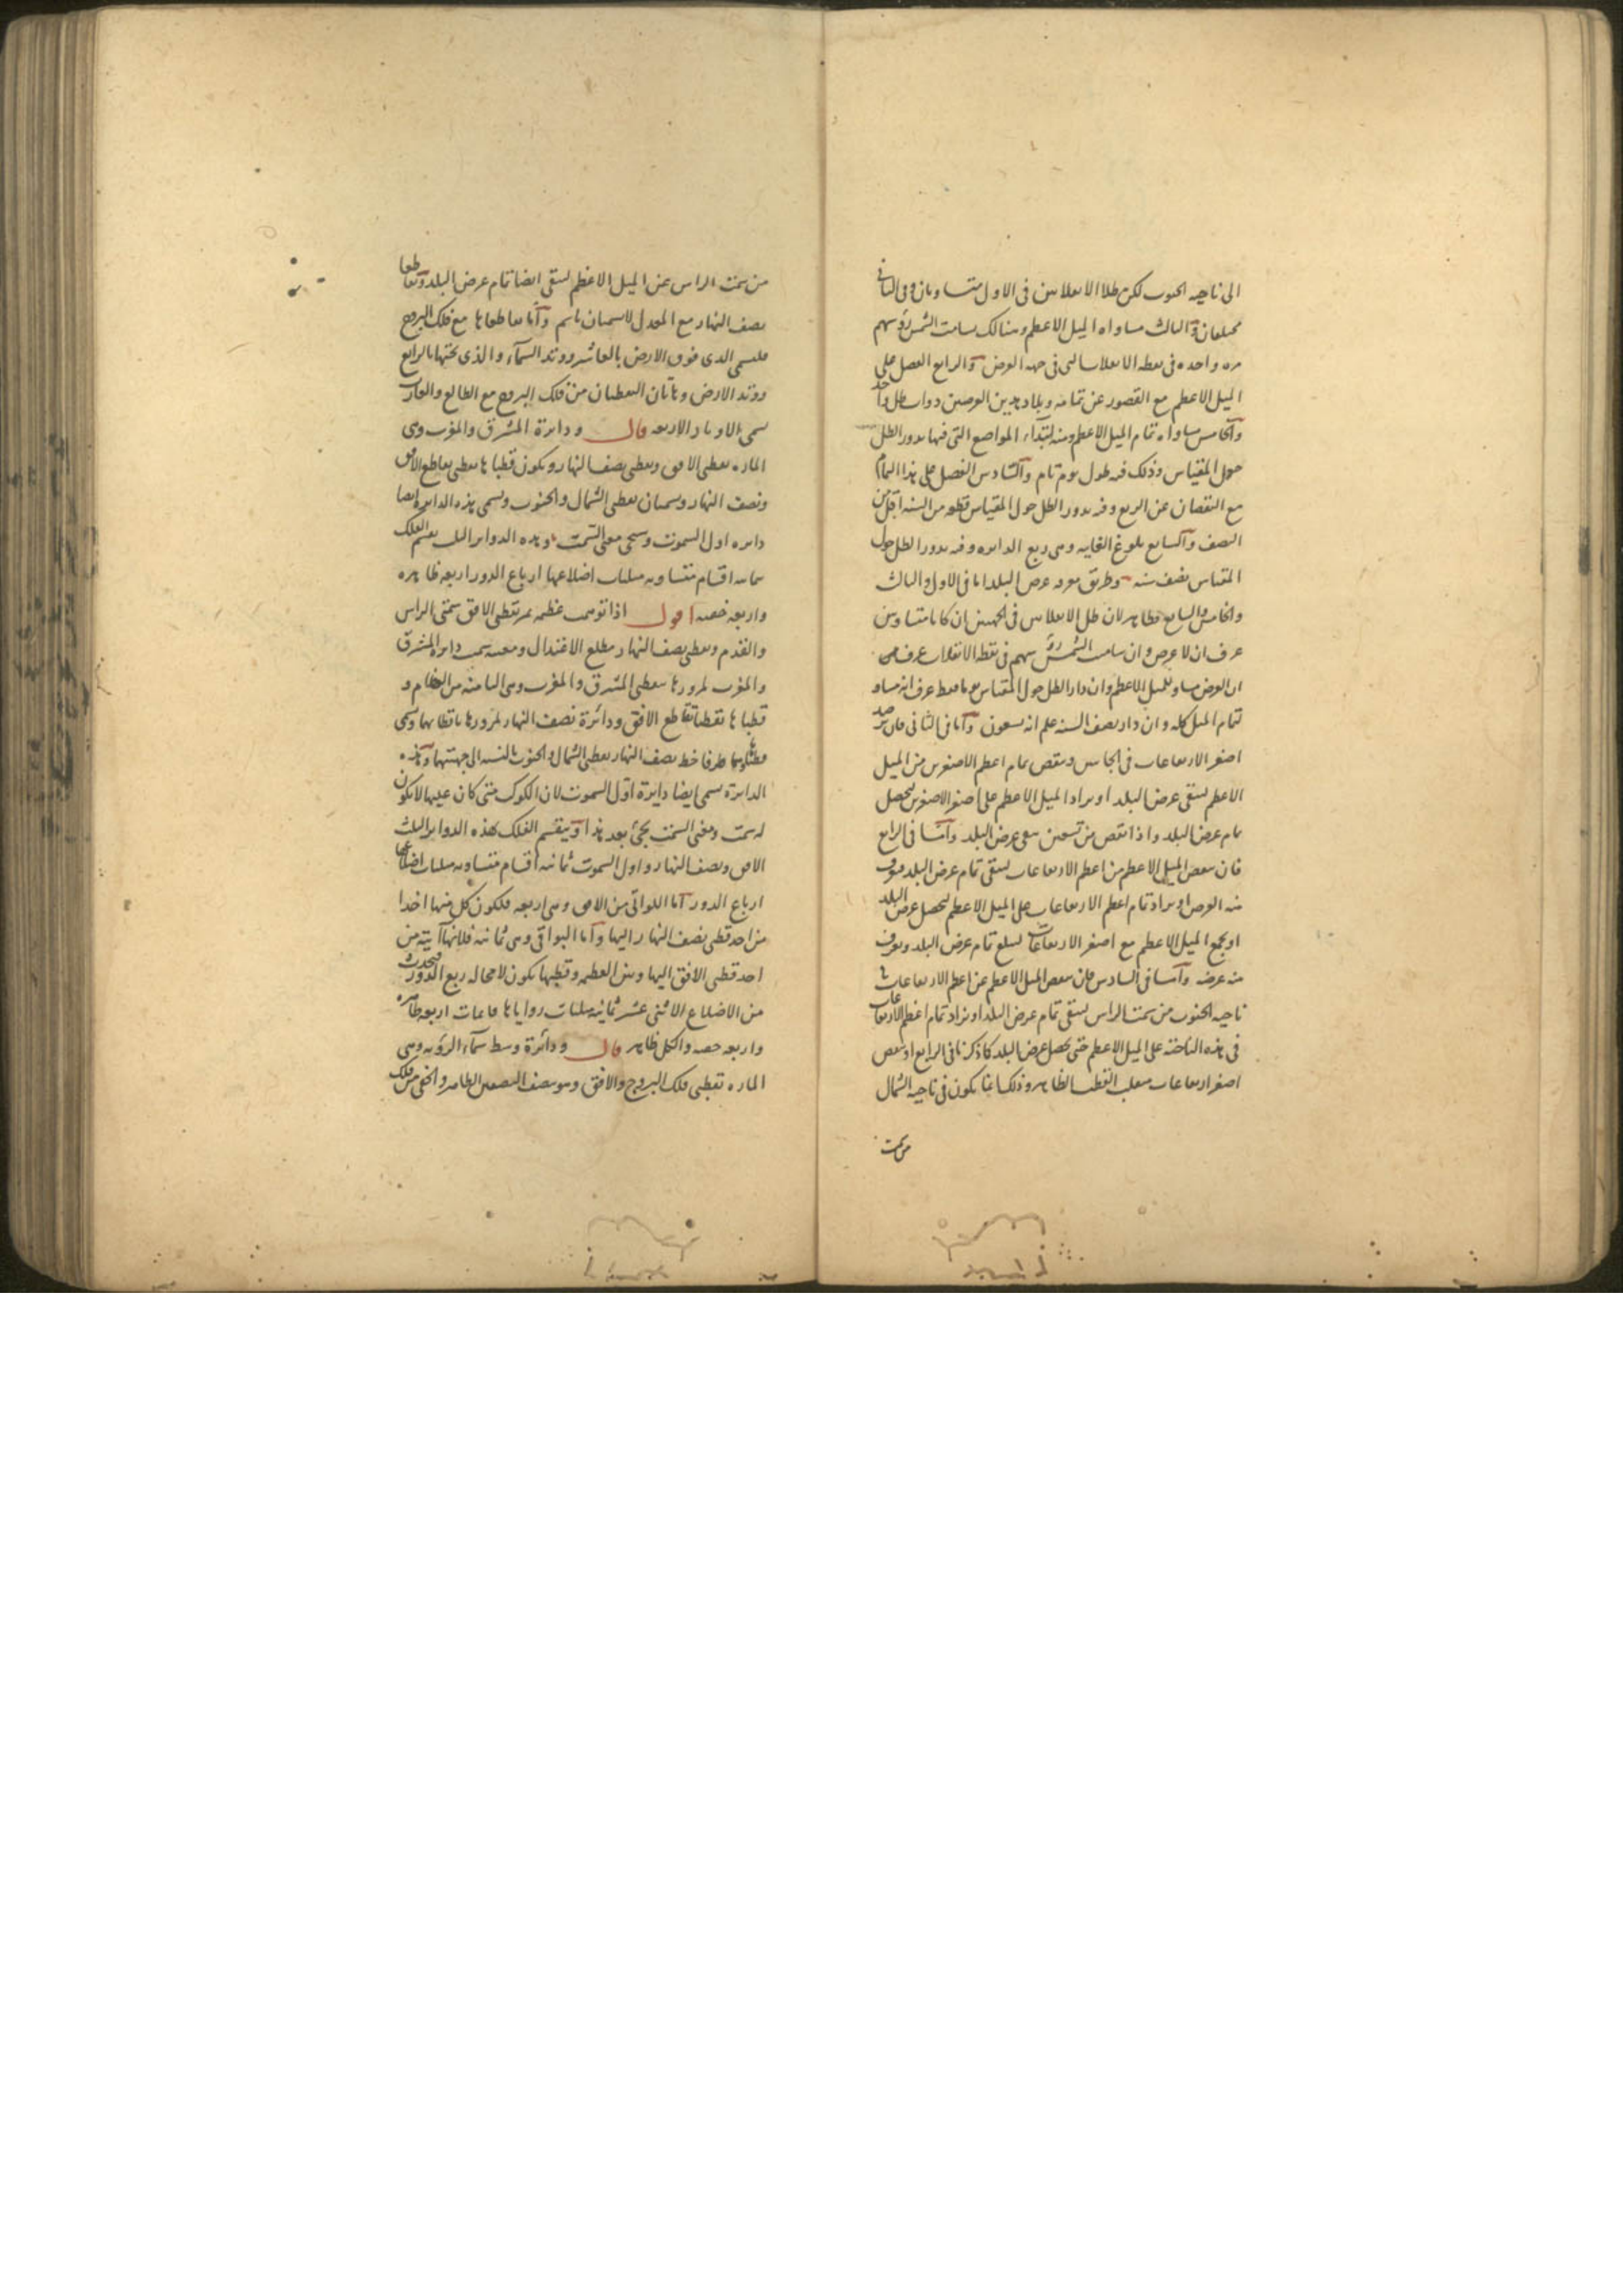 الى ناحيه الجنوب لكن ظلا الانقلابين فى الاول متساويان وفى الثانى
مختلفان وآلثالث مساواه الميل الاعظم وهنالك يسامت الشمس رؤسهم
مره واحده فى نقطه الانقلاب التى فى جهه العرض وآلرابع الفضل على
الميل الاعظم مع القصور عن تمامه وبلاد هذين العرضين ذوات ظل واحد
وآلخامس مساواه تمام الميل الاعظم ومنه ابتداء المواضع التى فيها يدور الظل
حول المقياس وذلك فى طول يوم تام وآلسادس الفضل على هذا التمام
مع النقصان عن الربع وفيه يدور الظل حول المقياس قطعه من السنه اقل من
النصف وآلسابع بلوغ الغايه وهى ربع الدايره وفيه يدور الظل حول
المقياس نصف سنه وطريق معرفه عرض البلد اما فى الاول والثالث
والخامس والسابع فظاهر لان ظل الانقلابين فى الجهتين ان كانا متساويين
عرف ان لا عرض وان سامت الشمس رؤسهم فى نقطه الانقلاب عرف
ان العرض مساو للميل الاعظم وان دار الظل حول المقياس يوما فقط عرف انه مساو
لتمام الميل كله وان دار نصف السنه علم انه تسعون وآما فى الثانى فان
اصغر الارتفاعات فى الجانبين وينقص تمام اعظم الاصغرين من الميل
الاعظم ليبقى عرض البلد او يزاد الميل الاعظم على اصغر الاصغرين ليحصل
تمام عرض البلد واذا نقص من تسعين بقى عرض البلد وآما فى الرابع
فان ينقص الميل الاعظم من اعظم الارتفاعات ليبقى تمام عرض البلد فيعرف
منه العرض او يزاد تمام اعظم الارتفاعات على الميل الاعظم ليحصل عرض البلد
او يجمع الميل الاعظم مع اصغر الارتفاعات ليبلغ تمام عرض البلد ويعرف
منه عرضه وآما فى السادس فان ينقص الميل الاعظم عن اعظم الارتفاعات فى
ناحيه الجنوب من سمت الراس ليبقى تمام عرض البلد او يزاد تمام اعظم الارتفاعات
فى هذه الناحيه على الميل الاعظم حتى يحصل عرض البلد كما ذكرنا فى الرابع او ينقص
اصغر ارتفاعات منقلب القطب الظاهر وذلك انما يكون فى ناحيه الشمال
من سمت
من سمت الراس عن الميل الاعظم ليبقى ايضا تمام عرض البلد وتقاطعا
نصف النهار مع المعدل لا يسميان باسم وآما تقاطعاها مع فلك البروج
فيسمى الذى فوق الارض بالعاشر ووتد السماء والذى تحتها بالرابع
ووتد الارض وهاتان النقطتان من فلك البروج مع الطالع والغارب
يسمى الاوتاد الاربعه قال ودايرة المشرق والمغرب وهى
الماره بقطبى الافق وبقطبى نصف النهار ويكون قطباها نقطتى تقاطع الافق
ونصف النهار ويسميان نقطتى الشمال والجنوب ويسمى هذه الدايره ايضا
دايره اول السموت وسيجى معنى السمت وهذه الدواير الثلث يقسم الفلك
ثمانيه اقسام متساويه مثلثات اضلاعها ارباع الدور اربعه ظاهره
واربعه خفيه اقول اذا توهمت عظيمه تمر بقطبى الافق سمتى الراس
والقدم وبقطبى نصف النهار مطلع الاعتدال ومغيبه سميت دايره المشرق
والمغرب لمرورها بنقطتى المشرق والمغرب وهى الثامنه من العظام و
قطباها نقطتا تقاطع الافق ودائرة نصف النهار لمرورها باقطابهما ويسمى
طرفا خط نصف النهار نقطتى الشمال والجنوب بالنسبه الى جهتيهما وهذه
الدايرة يسمى ايضا دايرة اول السموت لان الكوكب متى كان عليها لا يكون
له سمت ومعنى السمت يجئ بعد هذا وينقسم الفلك بهذه الدواير الثلث
الافق ونصف النهار واول السموت ثمانيه اقسام متساويه مثلثات اضلاعها
ارباع الدور آما اللواتى من الافق وهى اربعه فلكون كل منها اخذا
من احد قطبى نصف النهار اليها وآما البواقى وهى ثمانيه فلانها آتية من
احد قطبى الافق اليها وبين العظيمه وقطبها يكون لا محاله ربع الدور فيحدث
من الاضلاع الاثنى عشر ثمانيه مثلثات زواياها قايمات اربعه ظاهره
واربعه خفيه والكل ظاهر قال ودائرة وسط سماء الرؤيه وهى
الماره بقطبى فلك البروج والافق وهو ينصف النصفين الظاهر والخفى من فلك